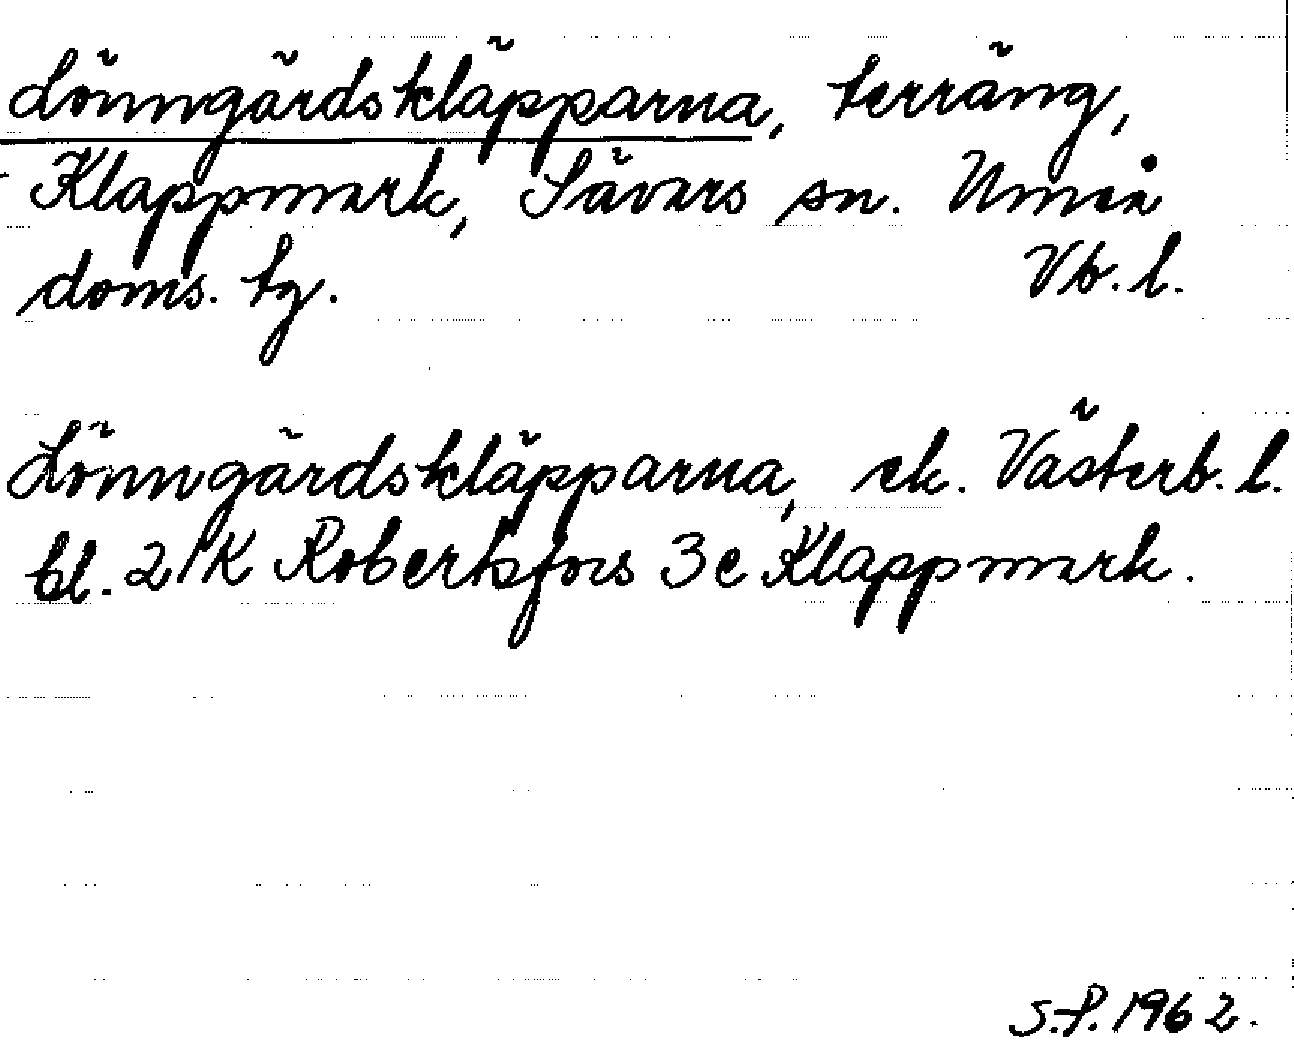 Lönngärdskläpparna, terräng,
Klappmark, Sävars sn. Umeå
doms. tg. Vb. l.
Lönngärdskläpparna, ek. Västerb. l.
bl. 21K Robertsfors 3e Klappmark.
S.P. 1962.